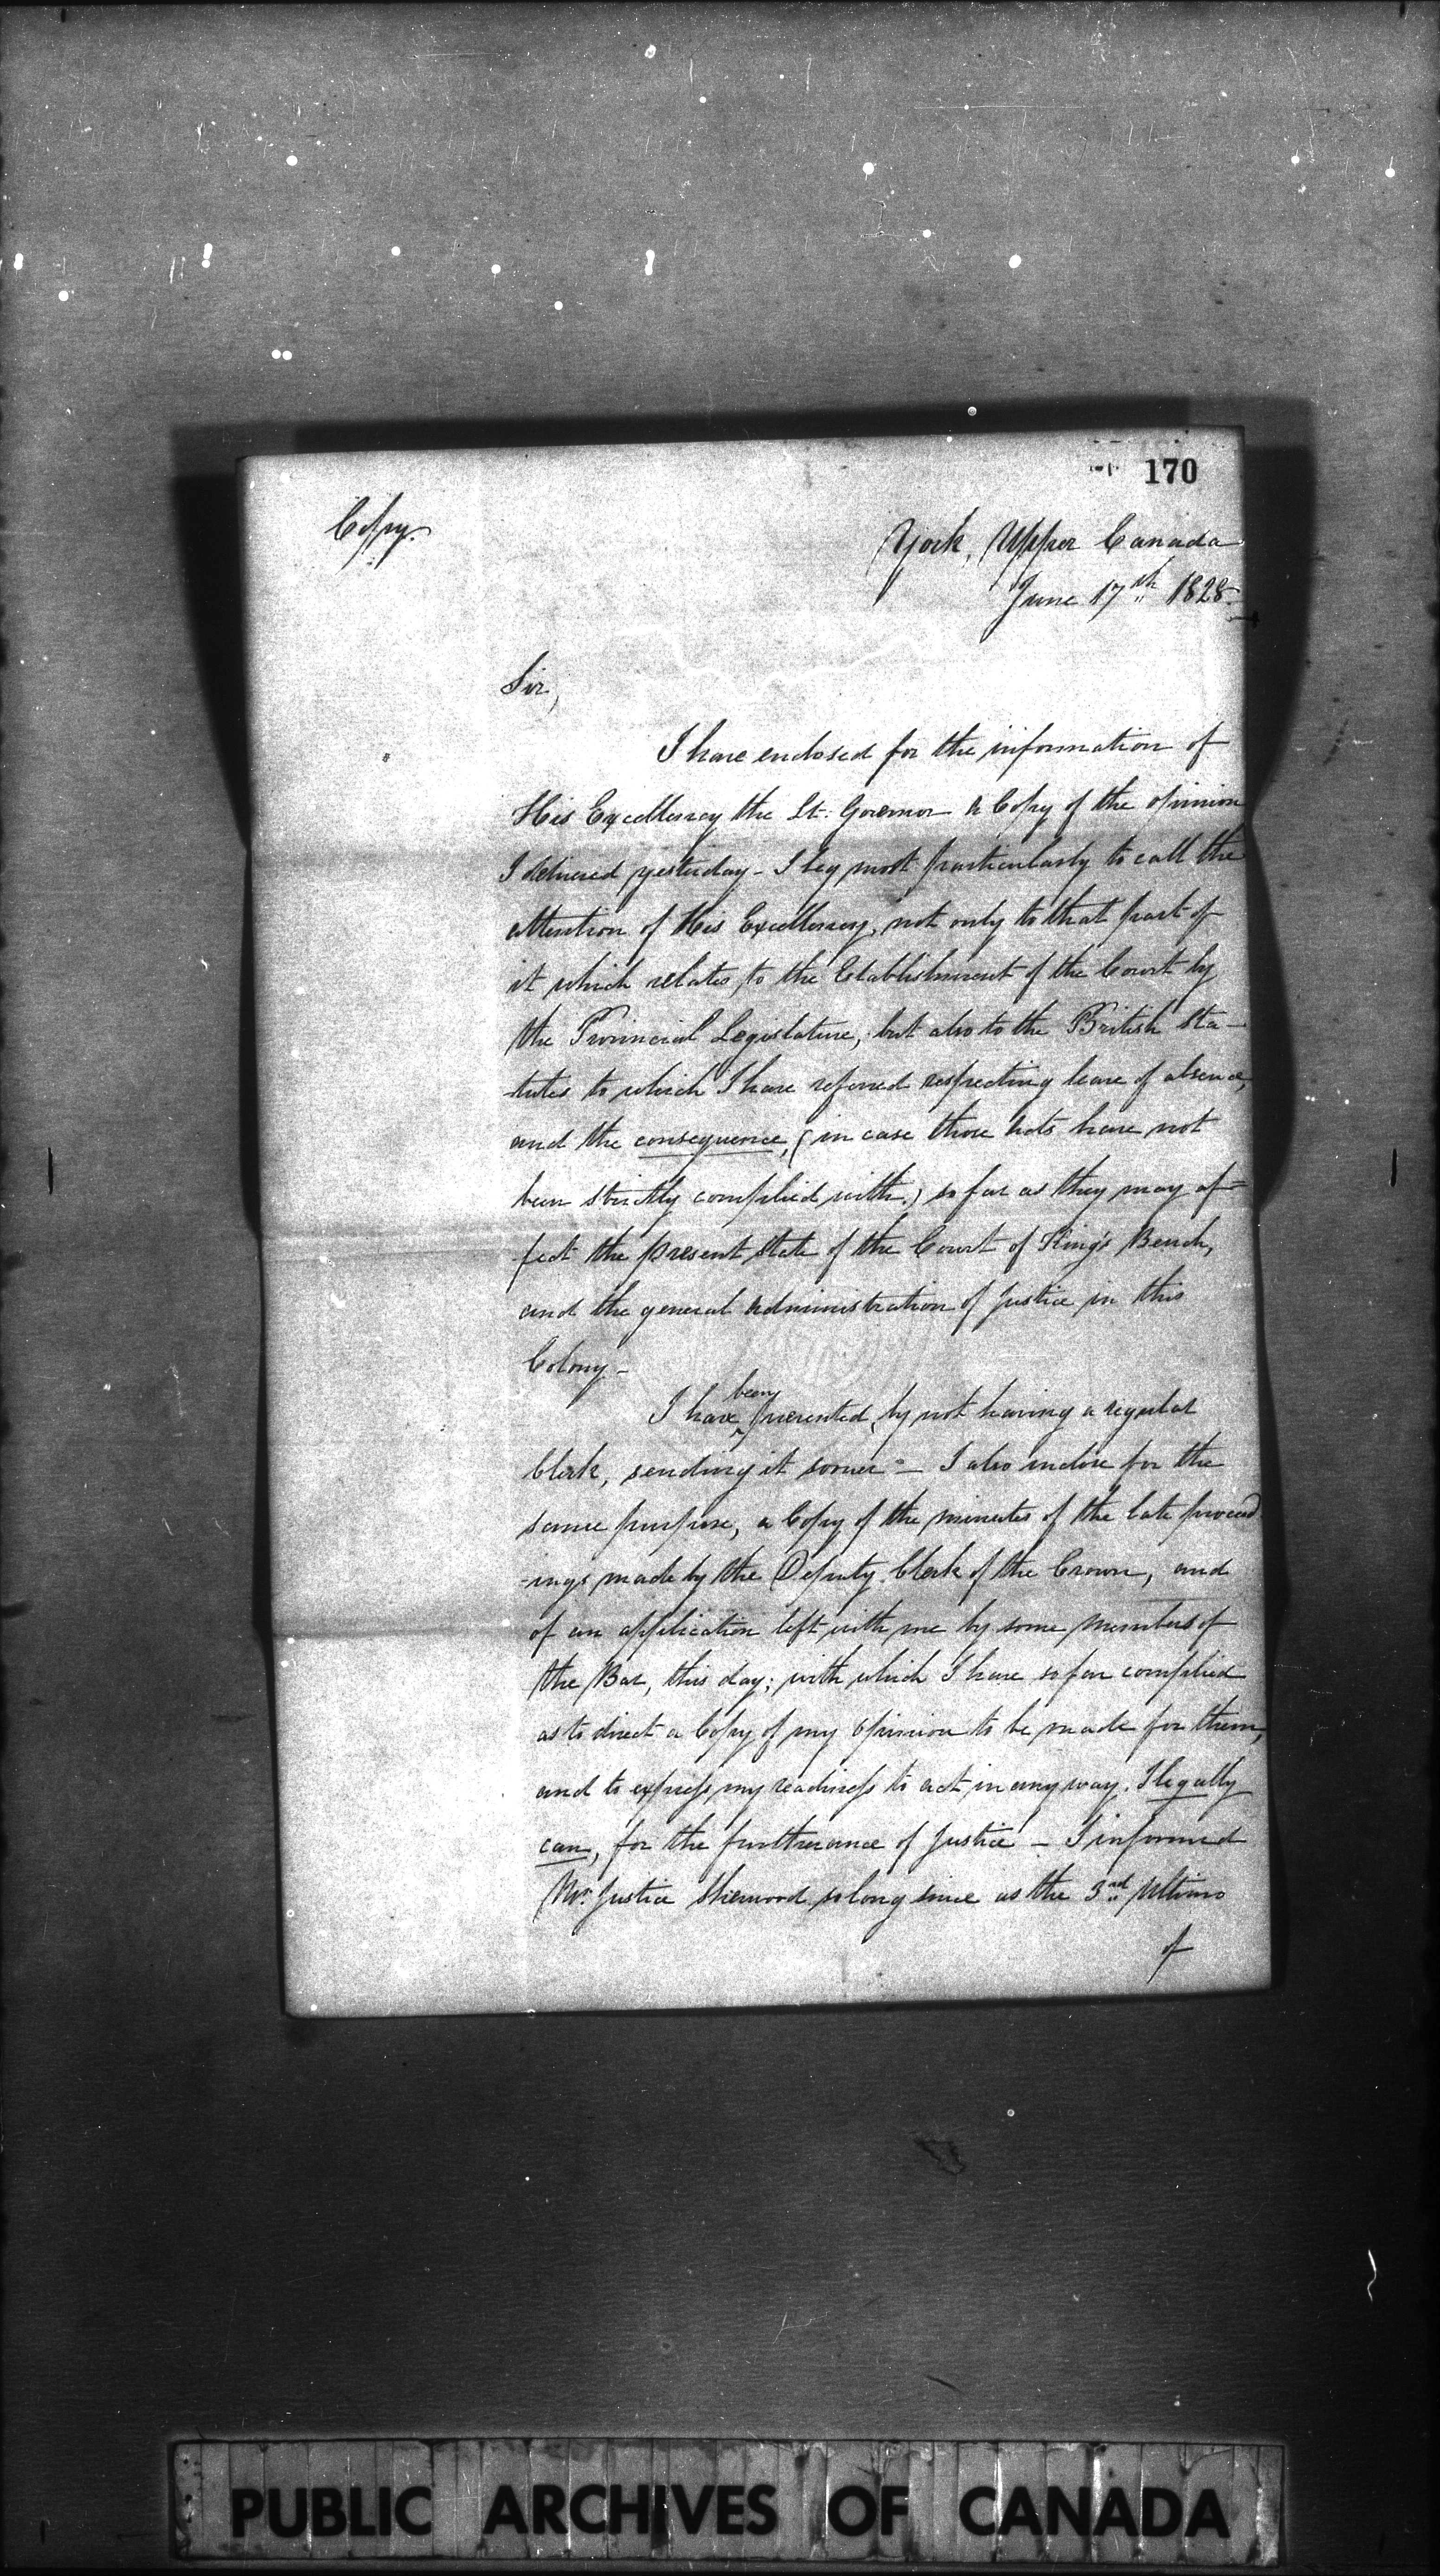 170
Copy.
York, Upper Canada
June 17th 1828.
Sir,
I have enclosed for the information of
His Excellency the Lt. Governor a Copy of the opinion
I delivered yesterday - I beg most particularly to call the
attention of His Excellency, not only to that part of
it which relates to the Establishment of the Court by
the Provincial Legislature, but also to the British Sta-
-tutes to which I have referred respecting leave of absence,
and the consequence, (in case those Acts have not
been strictly complied with.) so far as they may af=
fect the present state of the Court of King's Bench,
and the general administration of Justice in this
Colony -
I have been prevented, by not having a regular
Clerk, sending it sooner - I also enclose for the
same purpose, a Copy of the minutes of the late proceed
-ings made by the Deputy Clerk of the Crown, and
of an application left with me by some members of
the Bar, this day; with which I have so far complied
as to direct a Copy of my opinion to be made for them,
and to express my readiness to act in any way I legally
can, for the furtherance of Justice - I informed
Mr. Justice Sherwood so long since as the 3rd Ultimo
of
PUBLIC ARCHIVES OF CANADA